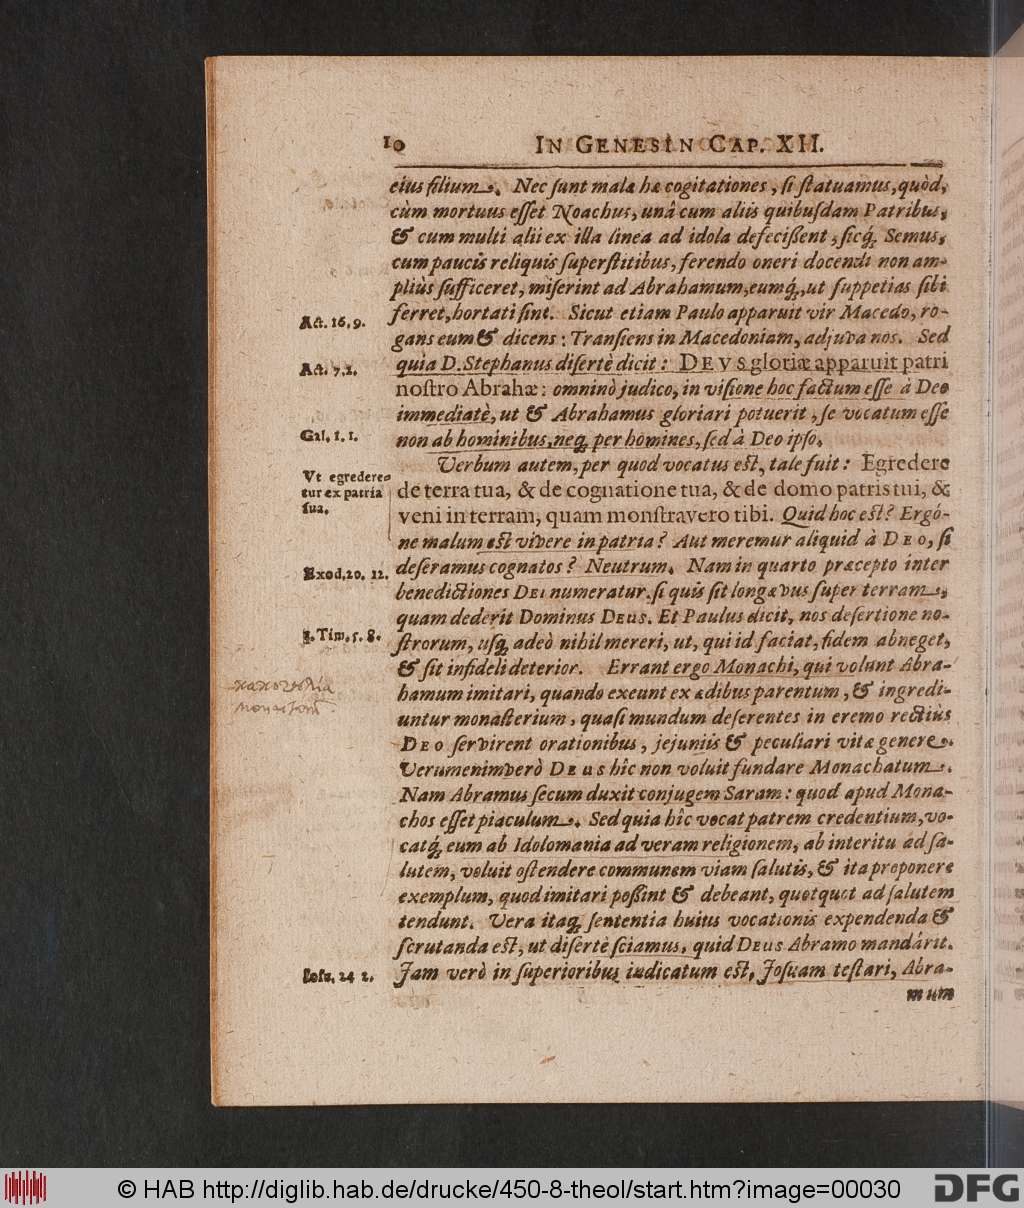 10 IN GENESIN CAP. XII.
eius filium. Nec sunt malæ hæ cogitationes, si statuamus, quòd,
cùm mortuus esset Noachus, unâ cum aliis quibusdam Patribus,
& cum multi alii ex illa linea ad idola defecißent, sicq́, Semus,
cum paucis reliquis superstitibus, ferendo oneri docendi non am-
pliùs sufficeret, miserint ad Abrahamum, eumq́, ut suppetias sibi
ferret, hortati sint. Sicut etiam Paulo apparuit vir Macedo, ro-
Act. 16, 9.
gans eum & dicens: Transiens in Macedoniam, adjuva nos. Sed
quia D. Stephanus disertè dicit: DEVS gloriæ apparuit patri
Act. 7, 2.
nostro Abrahæ: omninò judico, in visione hoc factum esse à Deo
immediatè, ut & Abrahamus gloriari potuerit, se vocatum esse
non ab hominibus, neq, per homines, sed à Deo ipso.
Gal. 1. 1.
Verbum autem, per quod vocatus est, tale fuit: Egredere
Vt egredere-
tur ex patria
sua.
de terra tua, & de cognatione tua, & de domo patris tui, &
veni in terram, quam monstravero tibi. Quid hoc est? Ergó-
ne malum est vivere in patria? Aut meremur aliquid à DEO, si
deseramus cognatos? Neutrum. Nam in quarto præcepto inter
Exod. 20. 12.
benedictiones DEI numeratur, si quis sit longævus super terram,
quam dederit Dominus DEUS. Et Paulus dicit, nos desertione no-
strorum, usq, adeò nihil mereri, ut, qui id faciat, fidem abneget,
1. Tim. 5. 8.
& sit infideli deterior. Errant ergo Monachi, qui volunt Abra-
hamum imitari, quando exeunt ex ædibus parentum, & ingredi-
untur monasterium, quasi mundum deserentes in eremo rectiùs
DEO servirent orationibus, jejuniis & peculiari vitæ genere.
Verumenimverò DEUS hîc non voluit fundare Monachatum.
Nam Abramus secum duxit conjugem Saram: quod apud Mona-
chos esset piaculum. Sed quia hîc vocat patrem credentium, vo-
catq́, eum ab Idolomania ad veram religionem, ab interitu ad sa-
lutem, voluit ostendere communem viam salutis, & ita proponere
exemplum, quod imitari poßint & debeant, quotquot ad salutem
tendunt. Vera itaq, sententia huius vocationis expendenda &
scrutanda est, ut disertè sciamus, quid DEUS Abramo mandárit.
Jam verò in superioribus indicatum est, Josuam testari, Abra-
Iosu. 24 2.
mum
© HAB http://diglib.hab.de/drucke/450-8-theol/start.htm?image=00030
DFG